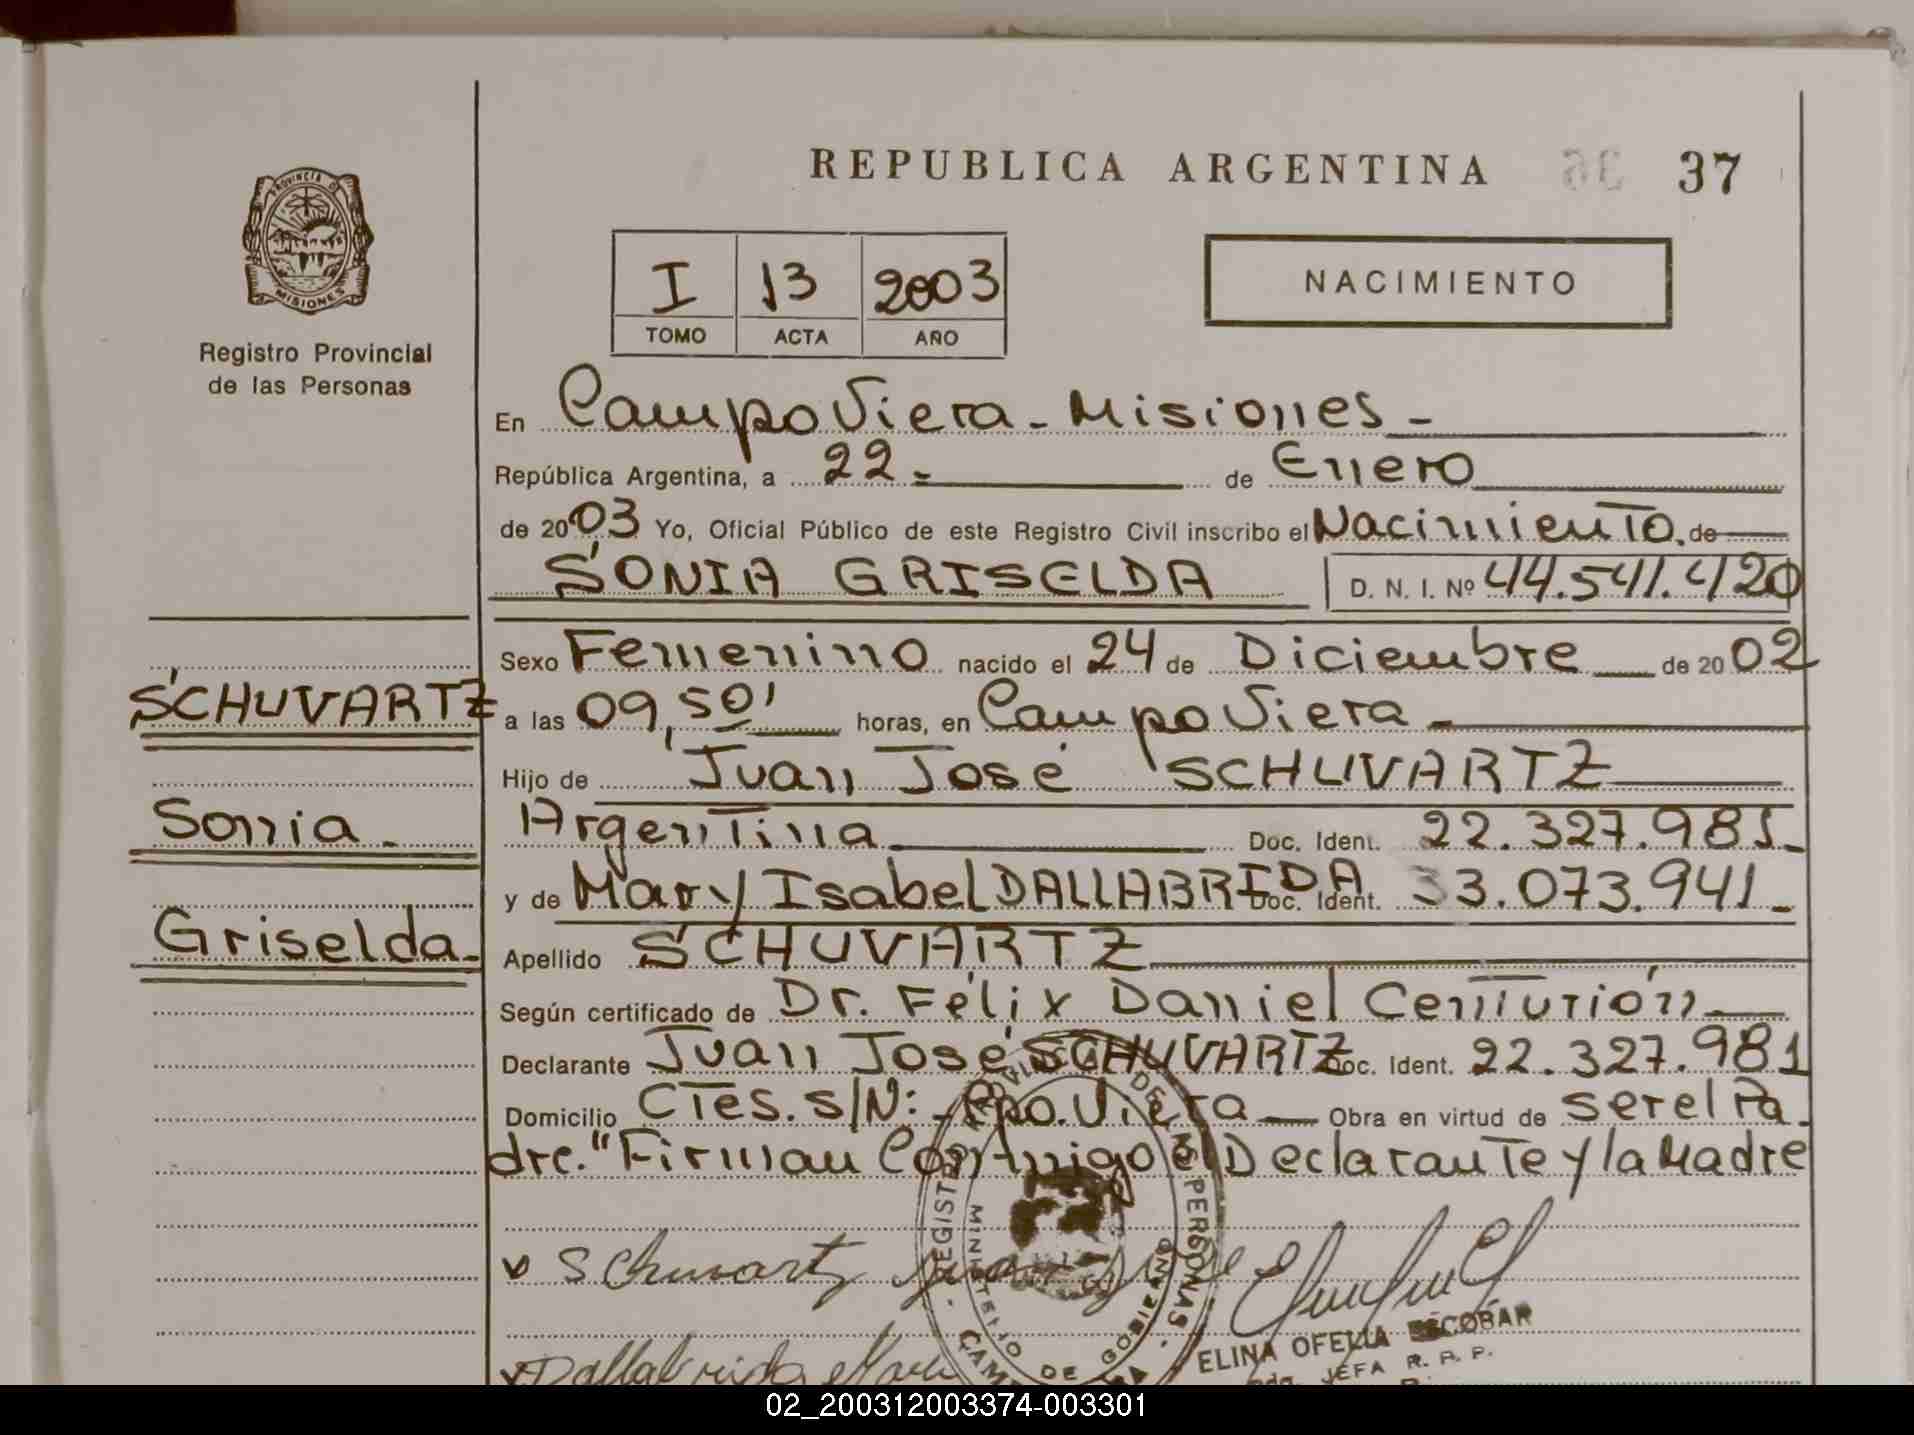 REPUBLICA ARGENTINA 36 37
PROVINCIA DE
MISIONES
Registro Provincial
de las Personas
I 13 2003
TOMO ACTA AÑO
NACIMIENTO
En Campo Viera - Misiones -
República Argentina, a 22 - de Enero
de 2003 Yo, Oficial Público de este Registro Civil inscribo el Nacimiento. de
SONIA GRISELDA D. N. I. Nº 44.541.420
Sexo Femenino nacido el 24 de Diciembre de 2002
SCHUVARTZ
a las 09,50' horas, en Campo Viera -
Hijo de Juan José SCHUVARTZ
Sonia -
Argentina Doc. Ident. 22.327.981 -
y de Mary Isabel DALLABRIDA Doc. Ident. 33.073.941 -
Griselda -
Apellido SCHUVARTZ
Según certificado de Dr. Félix Daniel Centurión
Declarante Juan José SCHUVARTZ Doc. Ident. 22.327.981
Domicilio CTes. s/N: - Cpo. Viera Obra en virtud de ser el Pa
dre. "Firman Conmigo el Declarante y la Madre
REGISTRO PROVINCIAL DE LAS PERSONAS
MINISTERIO DE GOBIERNO
Schuvartz Juan Jose
ELINA OFELIA ESCOBAR
JEFA R. P. P.
Dallabrida Mary
02_200312003374-003301